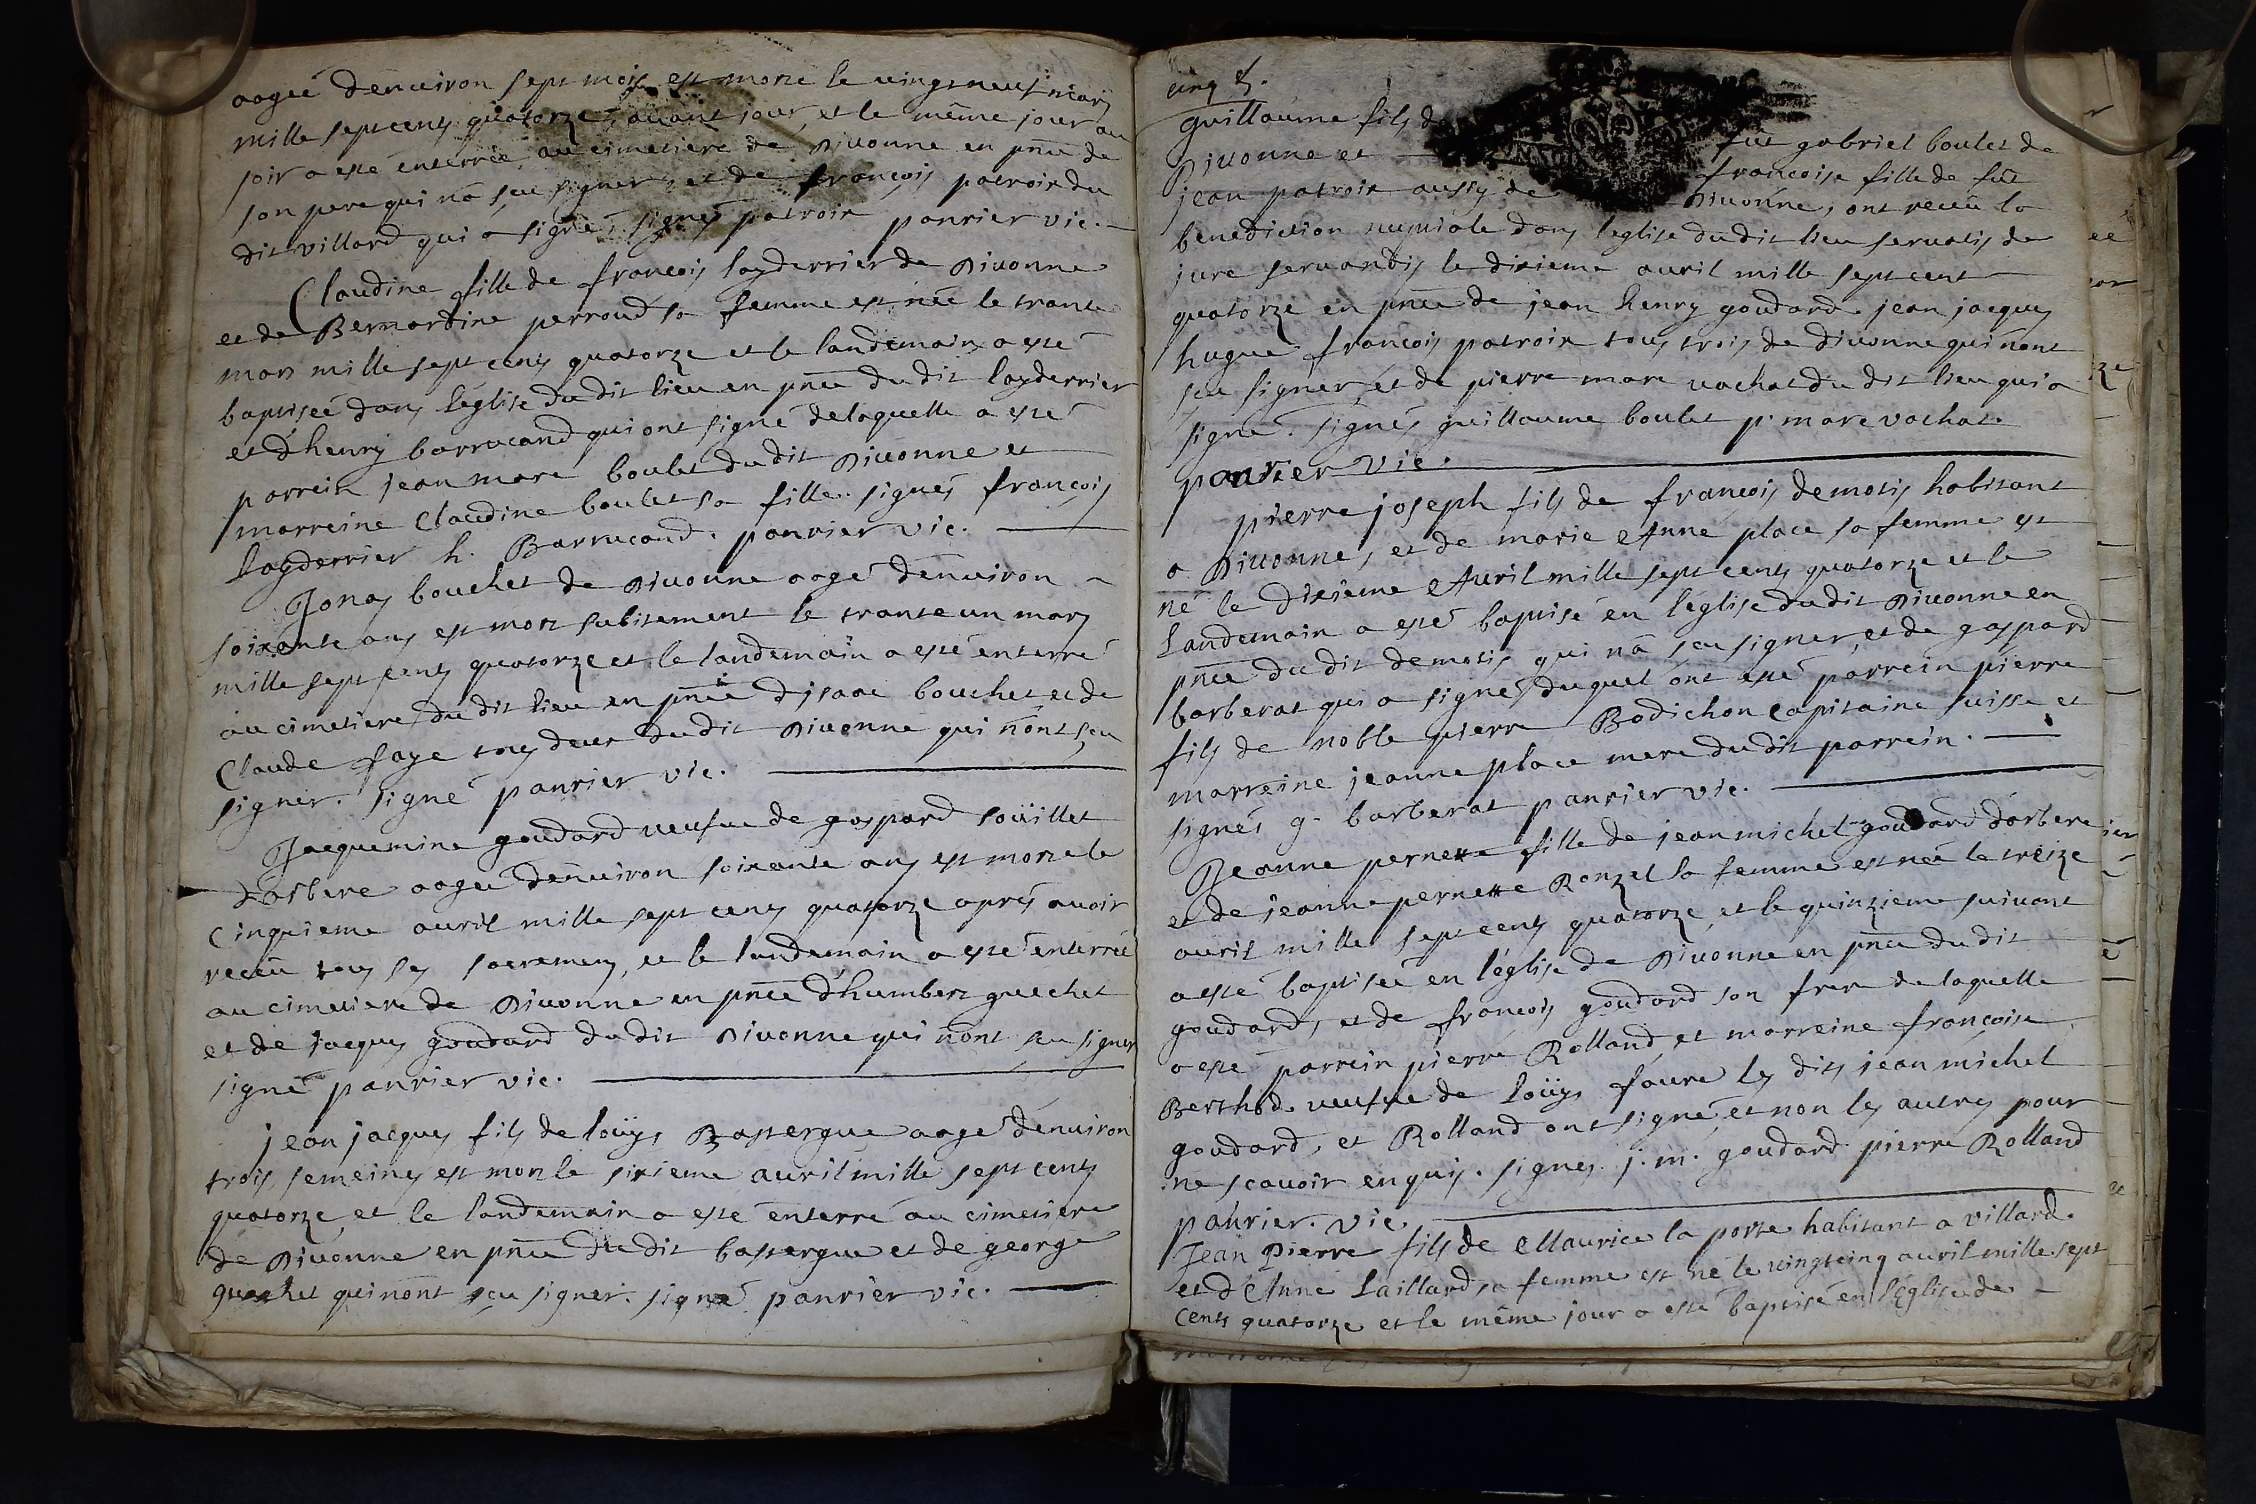 aagée d'enuiron sept mois est morte le vingtneuf mars
mille sept cents quatorze, auant jour, et le même jour au
soir a esté enterrée au cimetiere de Diuonne en pñce de
son pere qui n'a sçu signer, et de françois patroix du
dit villard qui a signé. signés patroix panrier vic.
Claudine fille de françois layderrier de Diuonne
et de Bernardine perroud sa femme est née le trante
mars mille sept cents quatorze et le landemain a esté
baptisée dans l'église du dit lieu en pñce du dit layderrier
et d'henry barrucand qui ont signé de laquelle a esté
parrein jean marc boulet du dit Diuonne et
marreine Claudine boulet sa fille. signés françois
layderrier h. Barrucand. panrier vic.
Jonas bouchet de Diuonne aagé d'enuiron
soixante ans est mort subitement le trante un mars
mille sept cents quatorze et le landemain a esté enterré
au cimetiere du dit lieu en pñce d'isaac bouchet et de
Claude faye tous deux du dit Diuonne qui n'ont sçu
signer. signé panrier vic.
Jacquemine goudard veufue de gaspard soüillet
d'arbere aagée d'enuiron soixante ans est morte le
Cinquieme auril mille sept cents quatorze aprés auoir
receü tous ses sacremens, et le landemain a esté enterrée
au cimetiere de Diuonne en pñce d'humbert guechet
et de jacques goudard du dit Diuonne qui n'ont sçu signer
signé panrier vic.
jean jacques fils de loüys Bastergue aagé d'enuiron
trois semeines est mort le sixieme auril mille sept cents
quatorze, et le landemain a esté enterré au cimetiere
de Diuonne en pñce du dit bastergue et de george
guechet qui n'ont sçu signer. signé panrier vic.
cinq
guillaume fils d fût gabriel boulet de
Diuonne et françoise fille de fût
jean patroix aussy de Diuonne, ont receü la
benediction nuptiale dans l'eglise du dit lieu seruatis de
jure seruandis le dixieme auril mille sept cent
quatorze en pñce de jean henry goudard jean jacques
hugue françois patroix tous trois de diuonne qui n'ont
sçu signer, et de pierre marc vachat du dit lieu qui a
signé. signés guillaume boulet p. marc vachat.
panrier vic.
pierre joseph fils de françois demotis habitant
a Diuonne, et de marie Anne place sa femme est
né le dixieme Auril mille sept cents quatorze et le
landemain a esté baptisé en l'église du dit Diuonne en
pñce du dit demotis qui n'a sçu signer, et de gaspard
barberat qui a signé, duquel ont esté parrein pierre
fils de noble pierre Badichon capitaine suisse et
marreine jeanne place mere du dit parrein.
signés g. barberat panrier vic.
Jeanne pernette fille de jean michel goudard d'arbere
et de jeanne pernette Ronzel sa femme est née le treize
auril mille sept cents quatorze, et le quinzieme suiuant
a esté baptisée en l'église de Diuonne en pñce du dit
goudard, et de françois goudard son frere de laquelle
a esté parrein pierre Rolland et marreine françoise
Berthod veufue de loüys faure les dits jean michel
goudard, et Rolland ont signé, et non les autres pour
ne scauoir enquis. signes. j. m. goudard pierre Rolland
panrier. vic.
Jean Pierre fils de Maurice la porte habitant a villard.
et d'Anne Laillard sa femme est né le vingtcinq auril mille sept
cents quatorze et le même jour a esté baptisé en l'Eglise de